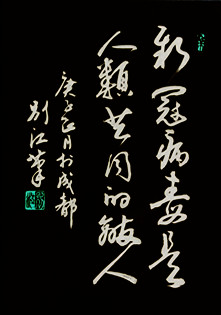 新冠病毒是
人類共同的敵人
庚子正月於成都
別江